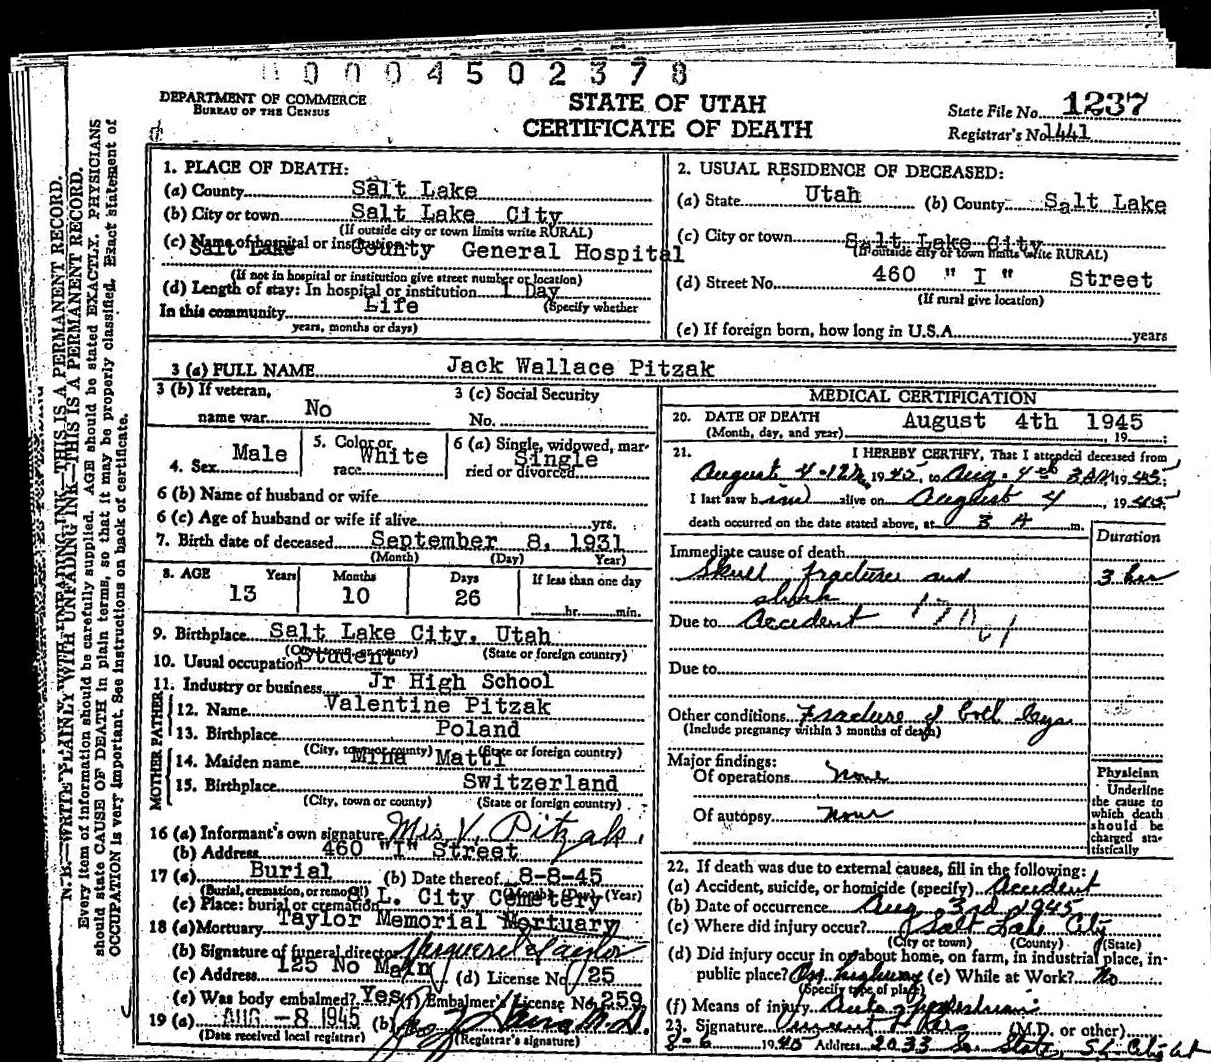 0004502378
DEPARTMENT OF COMMERCE
BUREAU OF THE CENSUS
STATE OF UTAH
CERTIFICATE OF DEATH
State File No. 1237
Registrar's No. 1441
N. B.—WRITE PLAINLY WITH UNFADING INK—THIS IS A PERMANENT RECORD.
Every item of information should be carefully supplied. AGE should be stated EXACTLY. PHYSICIANS
should state CAUSE OF DEATH in plain terms, so that it may be properly classified. Exact statement of
OCCUPATION is very important. See instructions on back of certificate.
1. PLACE OF DEATH:
(a) County Salt Lake
(b) City or town Salt Lake City
(If outside city or town limits write RURAL)
(c) Name of hospital or institution:
Salt Lake County General Hospital
(If not in hospital or institution give street number or location)
(d) Length of stay: In hospital or institution 1 Day
(Specify whether
In this community Life
years, months or days)
2. USUAL RESIDENCE OF DECEASED:
(a) State Utah (b) County Salt Lake
(c) City or town Salt Lake City
(If outside city or town limits write RURAL)
(d) Street No. 460 "I" Street
(If rural give location)
(e) If foreign born, how long in U.S.A. years
3 (a) FULL NAME Jack Wallace Pitzak
3 (b) If veteran,
name war No
3 (c) Social Security
No.
4. Sex Male
5. Color or
race White
6 (a) Single, widowed, mar-
ried or divorced Single
6 (b) Name of husband or wife
6 (c) Age of husband or wife if alive yrs.
7. Birth date of deceased September 8, 1931
(Month) (Day) Year)
8. AGE Years Months Days If less than one day
13 10 26 hr. min.
9. Birthplace Salt Lake City, Utah
(City, town, or county) (State or foreign country)
10. Usual occupation Student
11. Industry or business Jr High School
FATHER
12. Name Valentine Pitzak
13. Birthplace Poland
(City, town or county) (State or foreign country)
MOTHER
14. Maiden name Mina Matti
15. Birthplace Switzerland
(City, town or county) (State or foreign country)
16 (a) Informant's own signature Mrs V. Pitzak.
(b) Address 460 "I" Street
17 (a) Burial (b) Date thereof 8-8-45
(Burial, cremation, or removal) (Month) (Day) (Year)
(c) Place: burial or cremation L. City Cemetery
18 (a) Mortuary Taylor Memorial Mortuary
(b) Signature of funeral director Taylor
(c) Address 125 No Main (d) License No. 25
(e) Was body embalmed? Yes (f) Embalmer's License No. 259
19 (a) AUG -8 1945 (b) M.D.
(Date received local registrar) (Registrar's signature)
MEDICAL CERTIFICATION
20. DATE OF DEATH August 4th 1945
(Month, day, and year) , 19 ;
21. I HEREBY CERTIFY, That I attended deceased from
August 4-12 , 1945, to Aug. 4th 3 AM 1945;
I last saw him alive on August 4, 1945;
death occurred on the date stated above, at 3 A m.
Duration
Immediate cause of death
Skull fracture and 3 hrs
shock
Due to Accident
Due to
Other conditions Fracture of both legs
(Include pregnancy within 3 months of death)
Major findings:
Of operations None
Of autopsy None
Physician
Underline
the cause to
which death
should be
charged sta-
tistically
22. If death was due to external causes, fill in the following:
(a) Accident, suicide, or homicide (specify) Accident
(b) Date of occurrence Aug 3rd 1945
(c) Where did injury occur? Salt Lake City
(City or town) (County) (State)
(d) Did injury occur in or about home, on farm, in industrial place, in
public place? On highway (e) While at Work? No
(Specify type of place)
(f) Means of injury Auto pedestrian
23. Signature (M.D. or other)
8-6 1945 Address 2033 So. State, S.L. City Ut